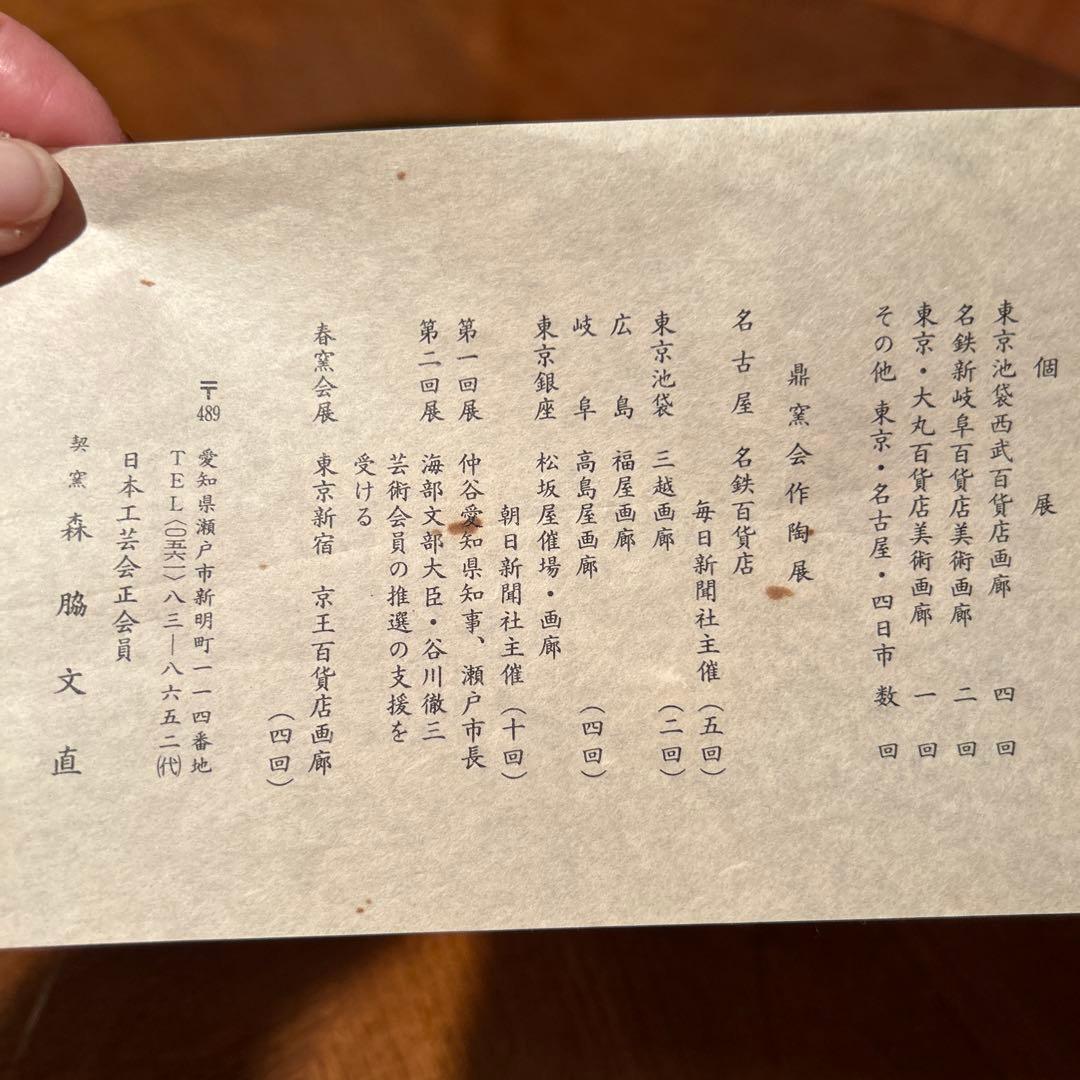 個展
東京池袋西武百貨店画廊 四回
名鉄新岐阜百貨店美術画廊 二回
東京・大丸百貨店美術画廊 一回
その他 東京・名古屋・四日市 数回
鼎窯会作陶展
名古屋 名鉄百貨店
毎日新聞社主催(五回)
東京池袋 三越画廊 (二回)
広島 福屋画廊
岐阜 高島屋画廊 (四回)
東京銀座 松坂屋催場・画廊
朝日新聞社主催(十回)
第一回展 仲谷愛知県知事、瀬戸市長
第二回展 海部文部大臣・谷川徹三
芸術会員の推選の支援を
受ける
春窯会展 東京新宿 京王百貨店画廊
(四回)
〒489 愛知県瀬戸市新明町一一四番地
TEL〈〇五六一〉八三―八六五二(代)
日本工芸会正会員
契窯 森脇文直